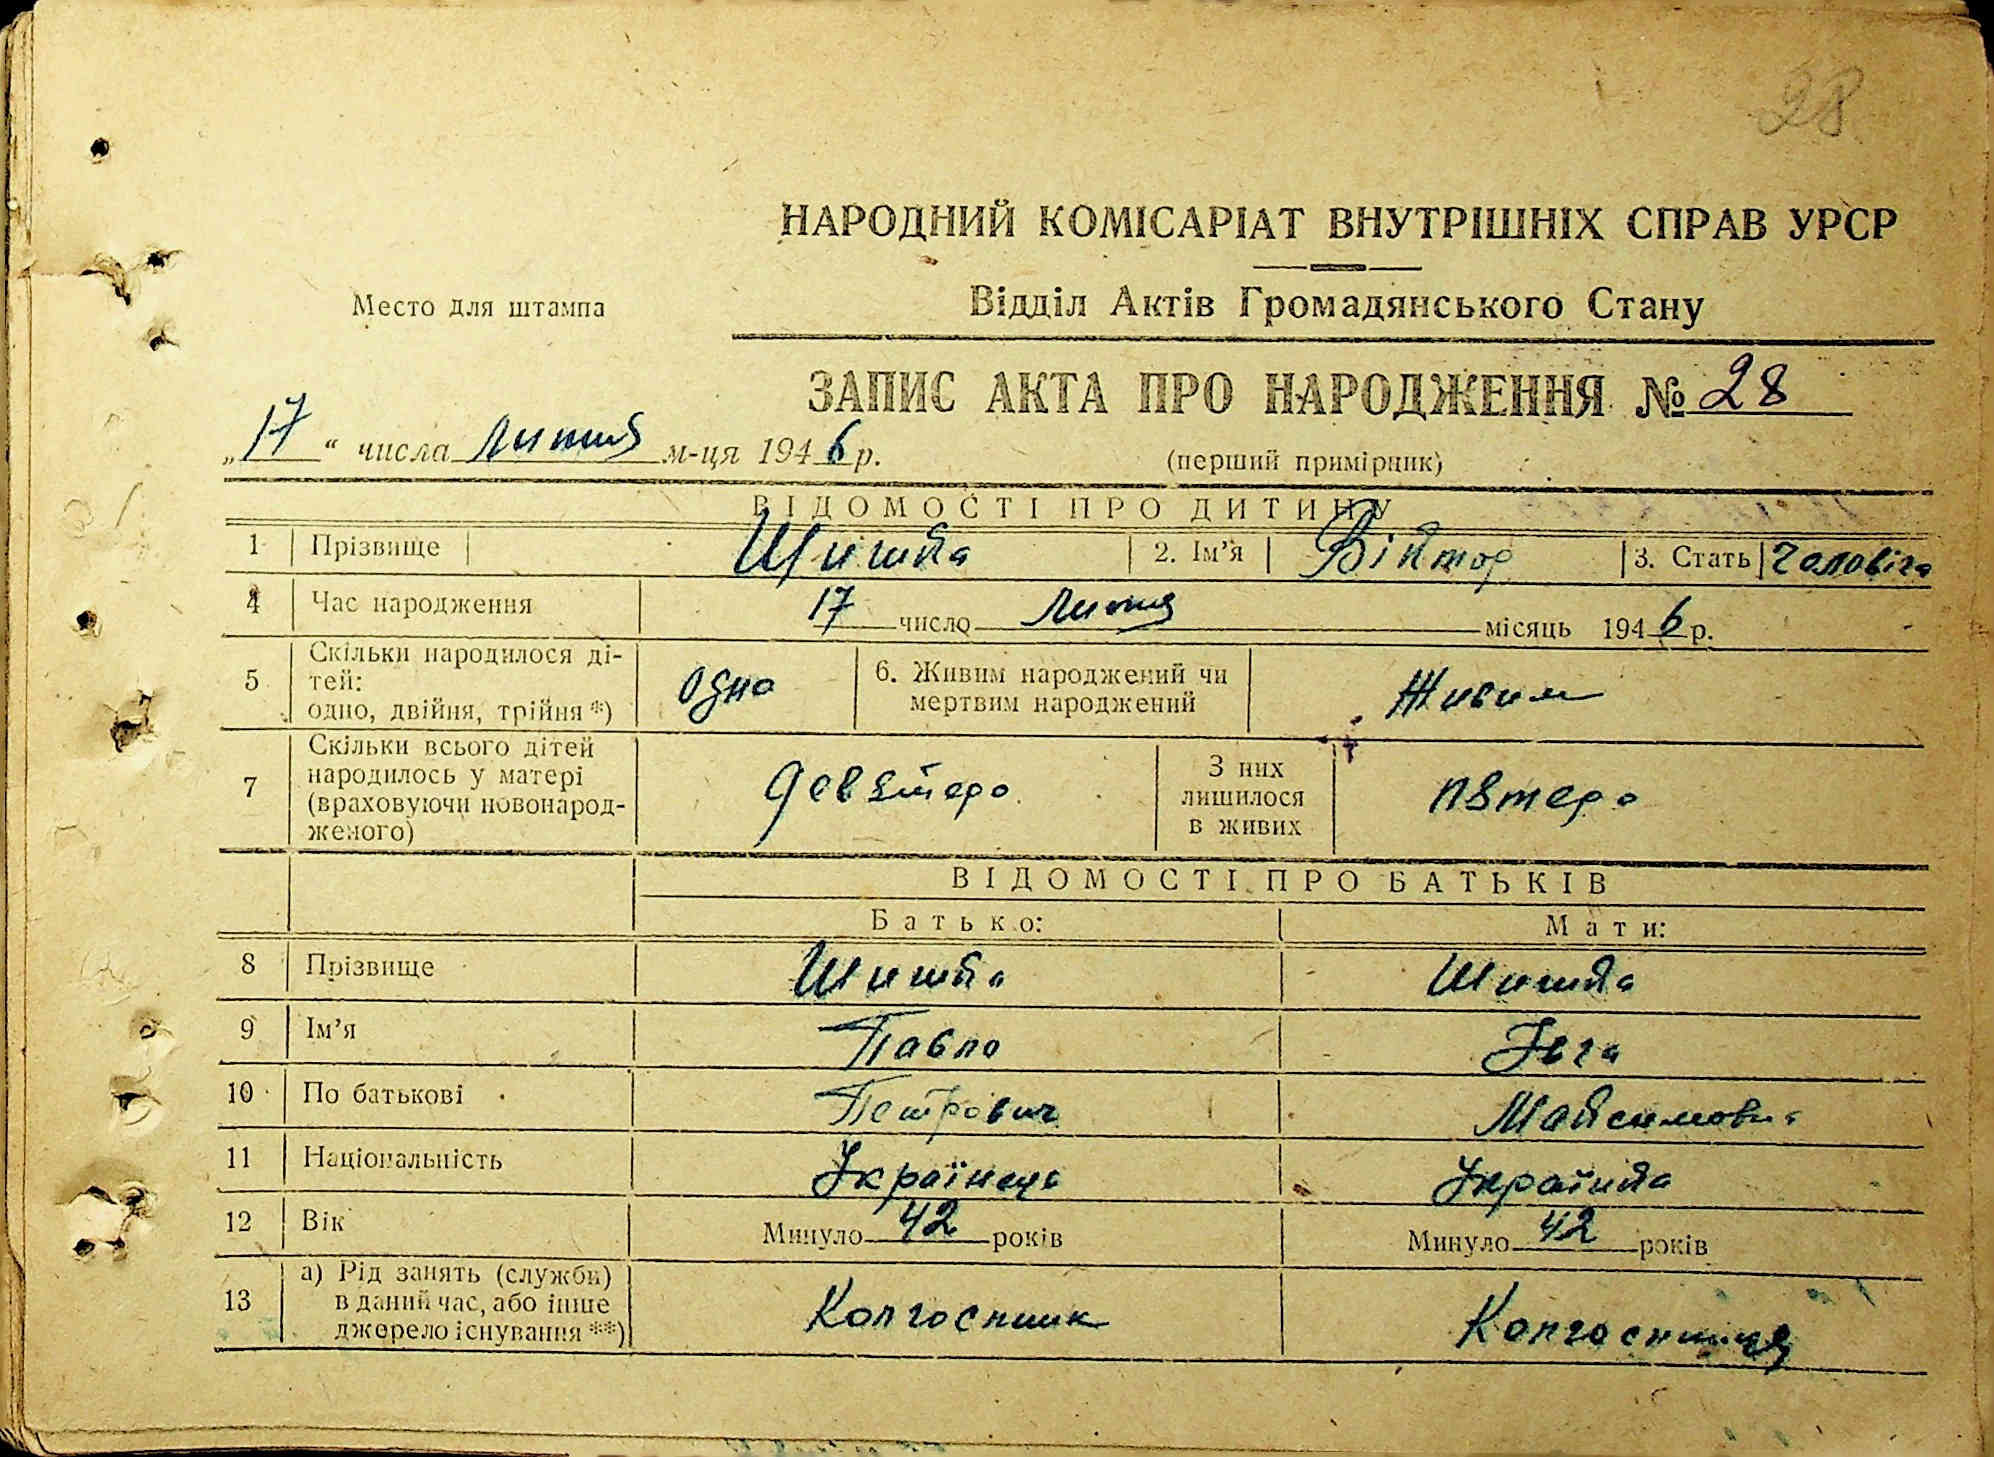 28
НАРОДНИЙ КОМІСАРІАТ ВНУТРІШНІХ СПРАВ УРСР
Место для штампа
Відділ Актів Громадянського Стану
ЗАПИС АКТА ПРО НАРОДЖЕННЯ № 28
„17“ числа липня м-ця 1946 р.
(перший примірник)
ВІДОМОСТІ ПРО ДИТИНУ
1 Прізвище Шишка 2. Ім’я Віктор 3. Стать чоловіча
4 Час народження 17 число липня місяць 1946 р.
5 Скільки народилося ді-
тей:
одно, двійня, трійня *)
одно
6. Живим народжений чи
мертвим народжений
Живим
7 Скільки всього дітей
народилось у матері
(враховуючи новонарод-
женого)
девятеро
З них
лишилося
в живих
пятеро
ВІДОМОСТІ ПРО БАТЬКІВ
Батько: Мати:
8 Прізвище Шишка Шишка
9 Ім’я Павло Івга
10 По батькові Петрович Максимовна
11 Національність Українець Українка
12 Вік Минуло 42 років Минуло 42 років
13 а) Рід занять (служби)
в даний час, або інше
джерело існування **)
Колгоспник Колгоспниця